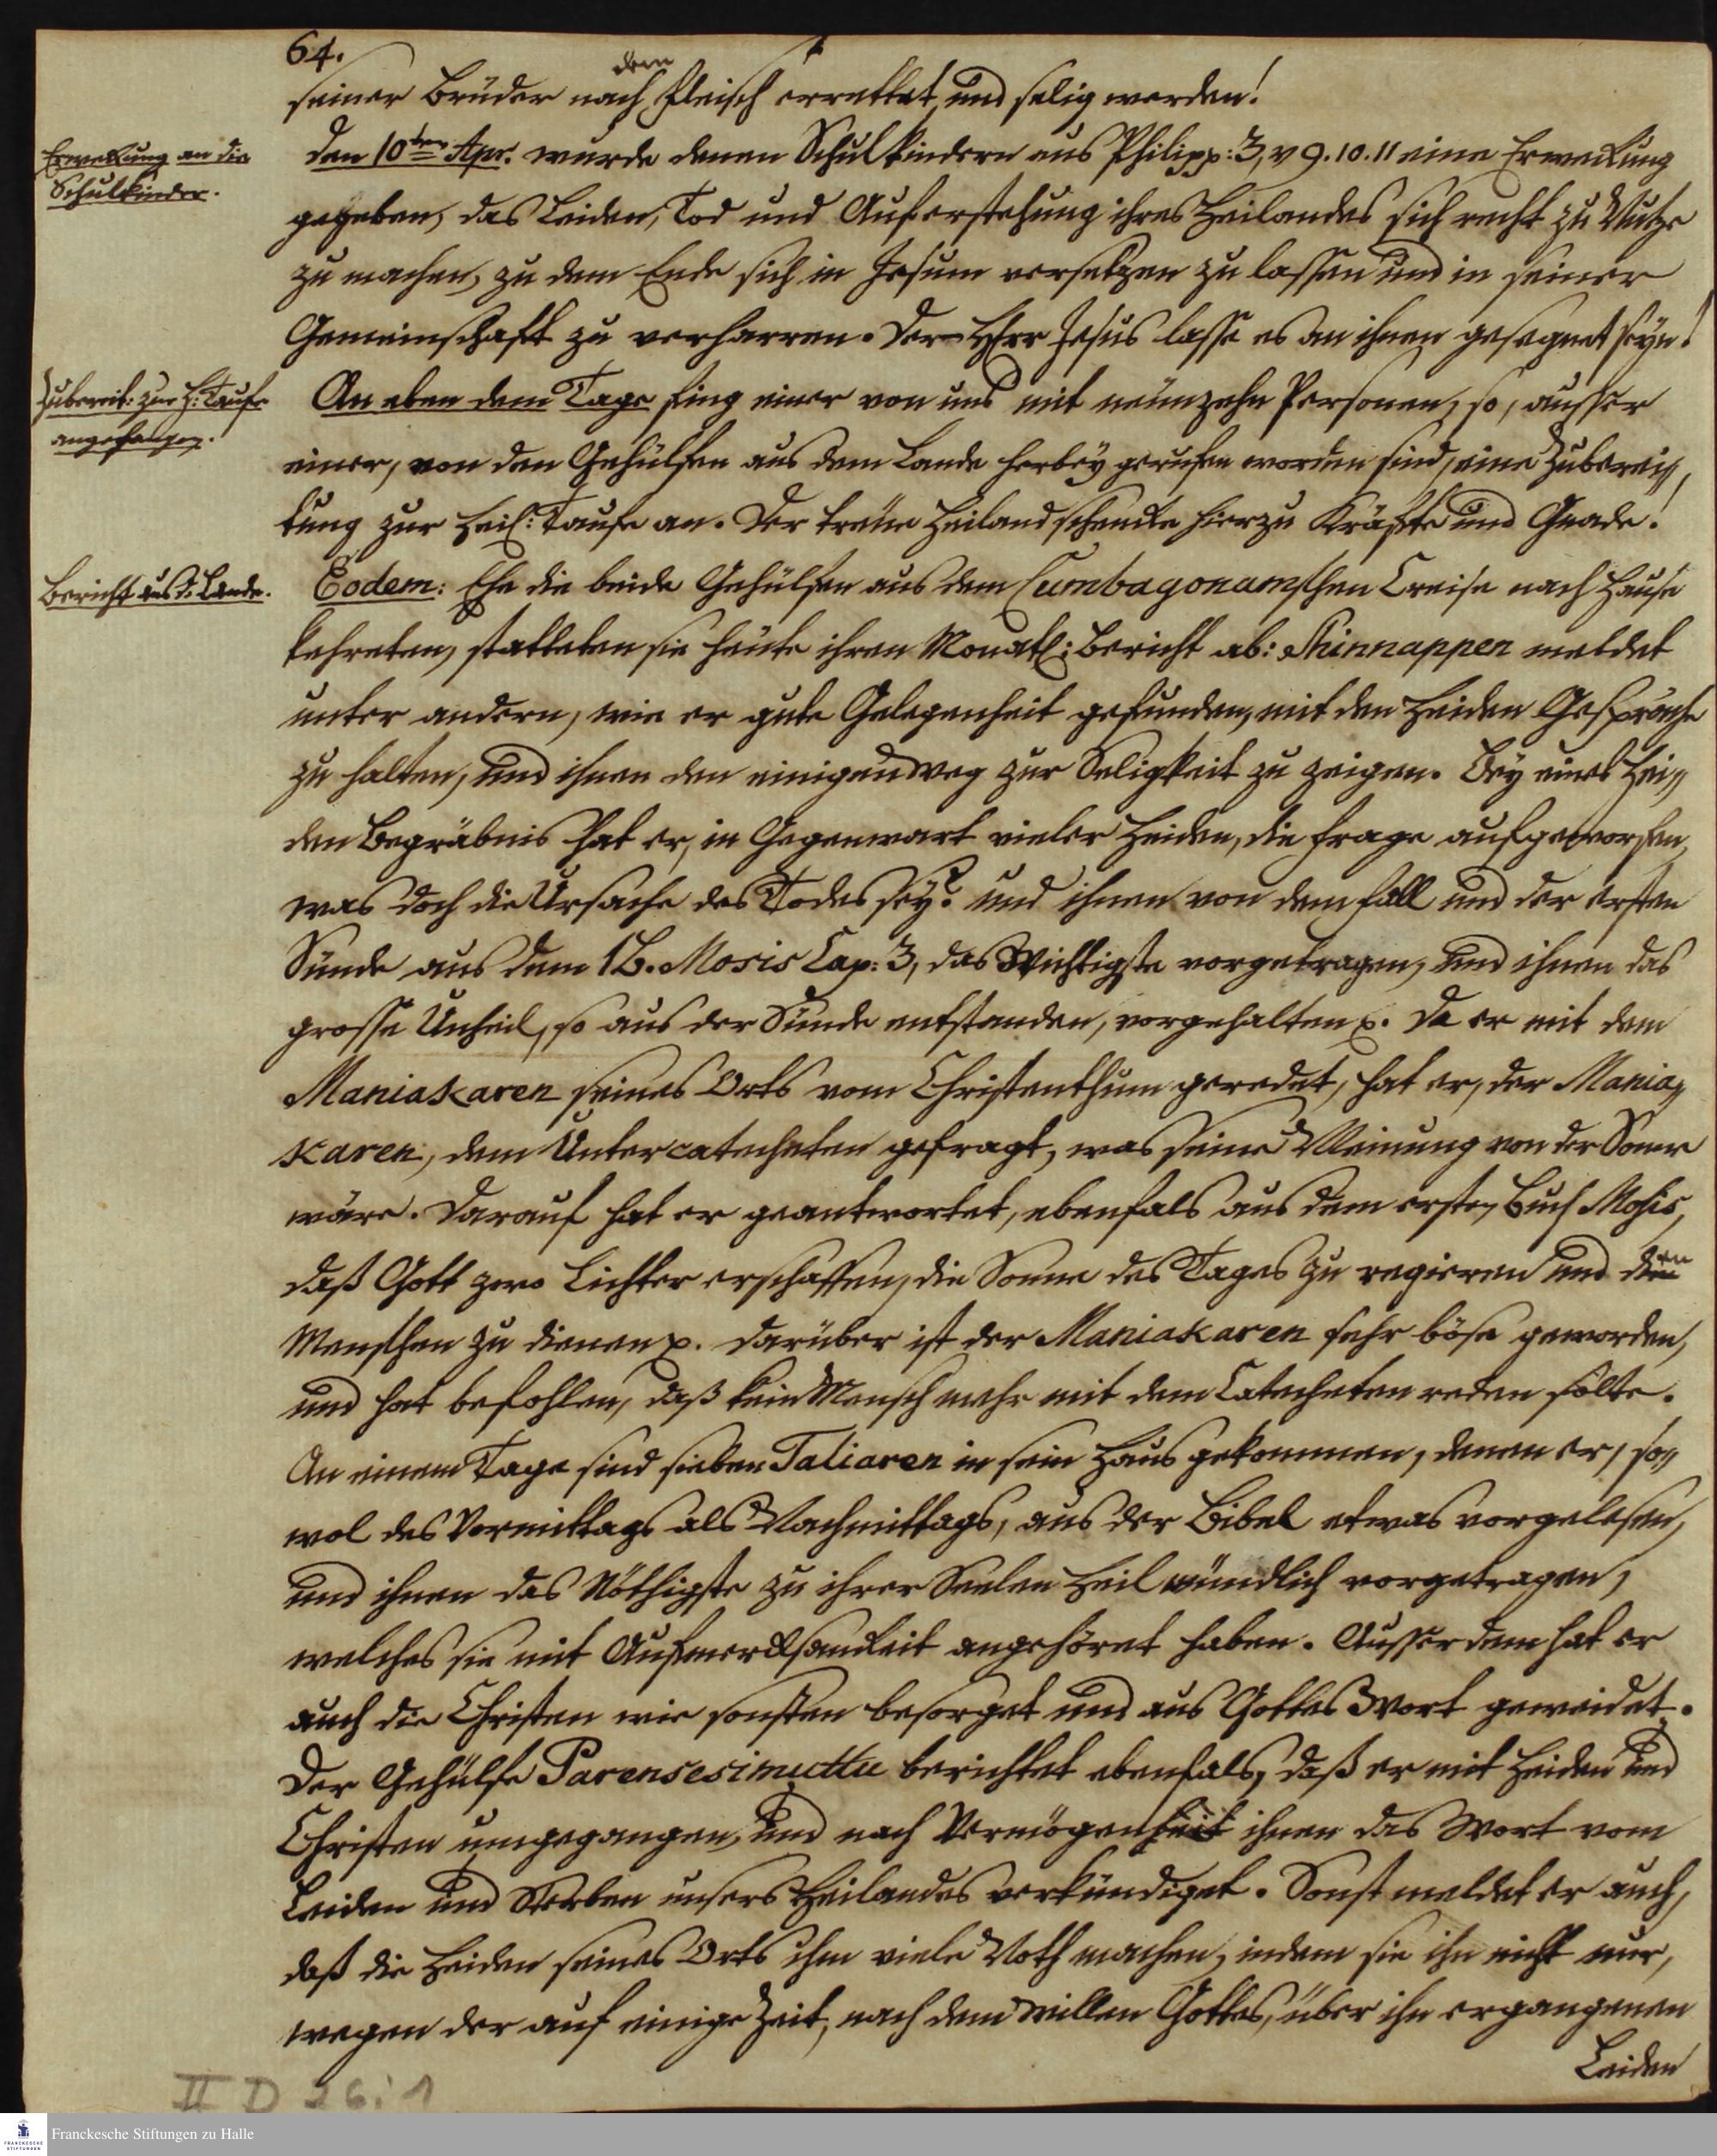 64.
seiner Brüder nach dem Fleisch errettet, und selig werden!
Erweckung an die
Schulkinder.
den 10ten Apr. wurde denen Schulkindern aus Philipp: 3, v 9. 10. 11 eine Erweckung
gegeben, das Leiden, Tod und Auferstehung ihres Heilandes sich recht zu Nutze
zu machen, zu dem Ende sich in Jesum versetzen zu lassen und in seiner
Gemeinschaft zu verharren. Der HErr Jesus lasse es an ihnen gesegnet seyn!
Zubereit: zur H: Taufe
angefangen.
An eben dem Tage fing einer von uns mit neunzehn Personen, so, ausser
einer, von den Gehülfen aus dem Lande herbey gerufen worden sind, eine Zuberei-
tung zur Heil: Taufe an. Der treue Heiland schencke hierzu Kräfte und Gnade!
Bericht aus d: Lande.
Eodem: Ehe die beide Gehülfen aus dem Cumbagonamschen Creise nach Hause
kehreten, statteten sie heute ihren Monatl: Bericht ab: Shinnappen meldet
unter andern, wie er gute Gelegenheit gefunden, mit den Heiden Gespräche
zu halten, und ihnen den einigen Weg zur Seligkeit zu zeigen. Bey eines Hei-
den Begräbnis hat er, in Gegenwart vieler Heiden, die Frage aufgeworfen,
was doch die Ursache des Todes sey? und ihnen von dem Fall und der ersten
Sünde aus dem 1 B. Mosis Cap: 3, das Wichtigste vorgetragen, und ihnen das
grosse Unheil, so aus der Sünde entstanden, vorgehalten p. Da er mit dem
Maniakaren seines Orts vom Christenthum geredet, hat er, der Mania-
karen, dem Untercatecheten gefragt, was seine Meinung von der Sonne
wäre. Darauf hat er geantwortet, ebenfals aus dem ersten Buch Mosis,
daß Gott zwo Lichter erschaffen, die Sonne des Tages zu regieren und den
Menschen zu dienen p. Darüber ist der Maniakaren sehr böse geworden,
und hat befohlen, daß kein Mensch mehr mit dem Catecheten reden solte.
An einem Tage sind sieben Taliaren in sein Haus gekommen, denen er, so-
wol des Vormittags als Nachmittags, aus der Bibel etwas vorgelesen,
und ihnen das Nöthigste zu ihrer Seelen Heil mündlich vorgetragen,
welches sie mit Aufmercksamkeit angehöret haben. Ausserdem hat er
auch die Christen wie sonsten besorget und aus Gottes Wort geweidet.
Der Gehülfe Parensesimuttu berichtet ebenfals, daß er mit Heiden und
Christen umgegangen, und nach Vermögenheit ihnen das Wort vom
Leiden und Sterben unsers Heilandes verkündiget. Sonst meldet er auch,
daß die Heiden seines Orts ihm viele Noth machen, indem sie ihn nicht nur,
wegen der auf einige Zeit, nach dem Willen Gottes, über ihn ergangenen
Leiden
II D 26:1
Franckesche Stiftungen zu Halle
FRANCKESCHE
STIFTUNGEN